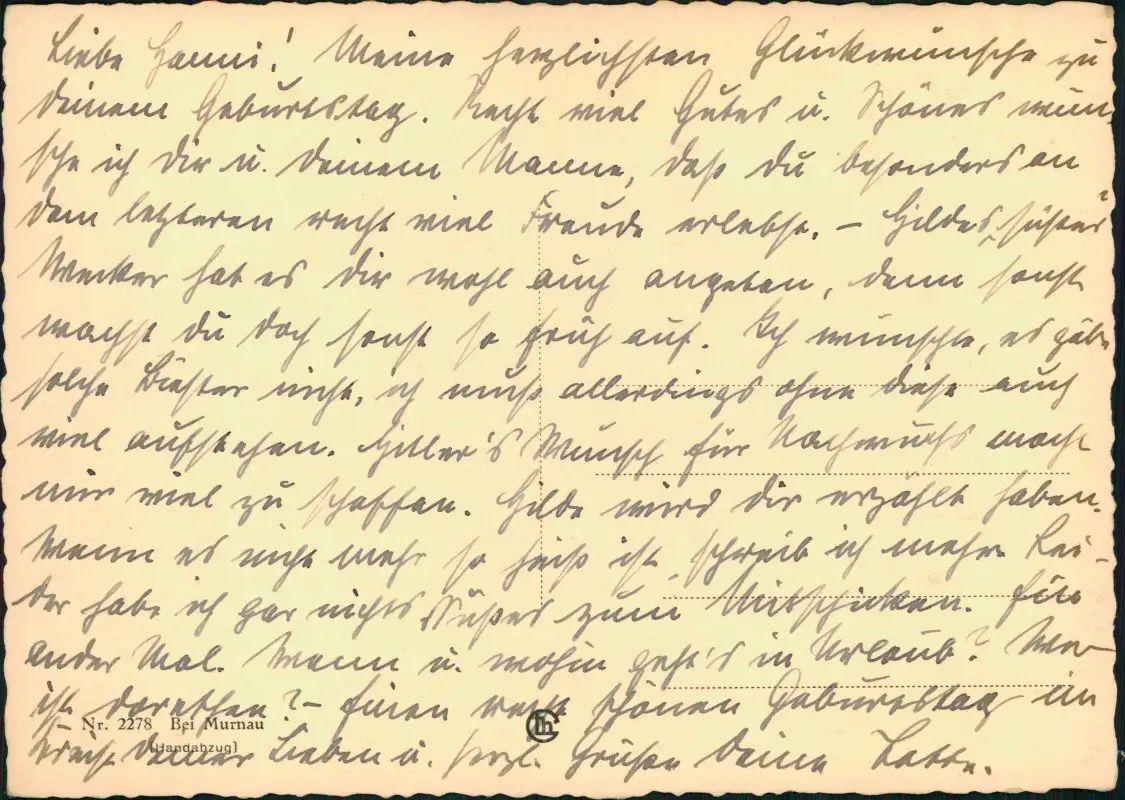 Liebe Hanni! Meine herzlichsten Glückwünsche zu
Deinem Geburtstag. Recht viel Gutes u. Schönes wün-
sche ich Dir u. Deinem Manne, daß Du besonders an
dem letzteren recht viel Freude erlebst. – Hildes
Wecker hat es Dir wohl auch angetan, denn sonst
wachst Du doch sonst so früh auf. Ich wünschte, es gäbe
solche Biester nicht, ich muß allerdings ohne diese auch
viel aufstehen. Hitler's Wunsch für Nachwuchs macht
mir viel zu schaffen. Hilde wird Dir erzählt haben.
Wenn es nicht mehr so heiß ist, schreib ich mehr. Lei-
der habe ich gar nichts Süßes zum Mitschicken. Ein
ander Mal. Wann u. wohin geht's in Urlaub? Wo
ist Dorothea? – Einen recht schönen Geburtstag im
Kreise Deiner Lieben u. herzl. Grüße Deine Lotte.
Nr. 2278 Bei Murnau
[Handabzug]